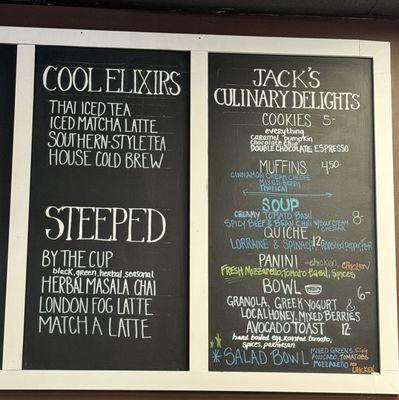 COOL ELIXIRS
THAI ICED TEA
ICED MATCHA LATTE
SOUTHERN-STYLE TEA
HOUSE COLD BREW
STEEPED
BY THE CUP
black, green, herbal, seasonal
HERBAL MASALA CHAI
LONDON FOG LATTE
MATCHA LATTE
JACK'S
CULINARY DELIGHTS
COOKIES 5-
everything
caramel pumpkin
chocolate chip
DOUBLE CHOCOLATE ESPRESSO
MUFFINS 4.50
CINNAMON CREAM CHEESE
MIXED BERRY
TROPICAL
SOUP
CREAMY TOMATO BASIL 8-
SPICY BEEF & BEAN CHILI SOUR CREAM
CHEDDAR
QUICHE
LORRAINE & SPINACH, 12 Roasted pepper, feta
PANINI -chicken, CHICKEN
FRESH Mozzarella, Tomato Basil, Spices
BOWL 6-
GRANOLA, GREEK YOGURT &
LOCAL HONEY, MIXED BERRIES
AVOCADO TOAST 12
hard boiled egg, roasted tomato,
spices, parmesan
* SALAD BOWL MIXED GREENS, EGG
AVOCADO, TOMATOES
MOZZARELLA
CHICKEN